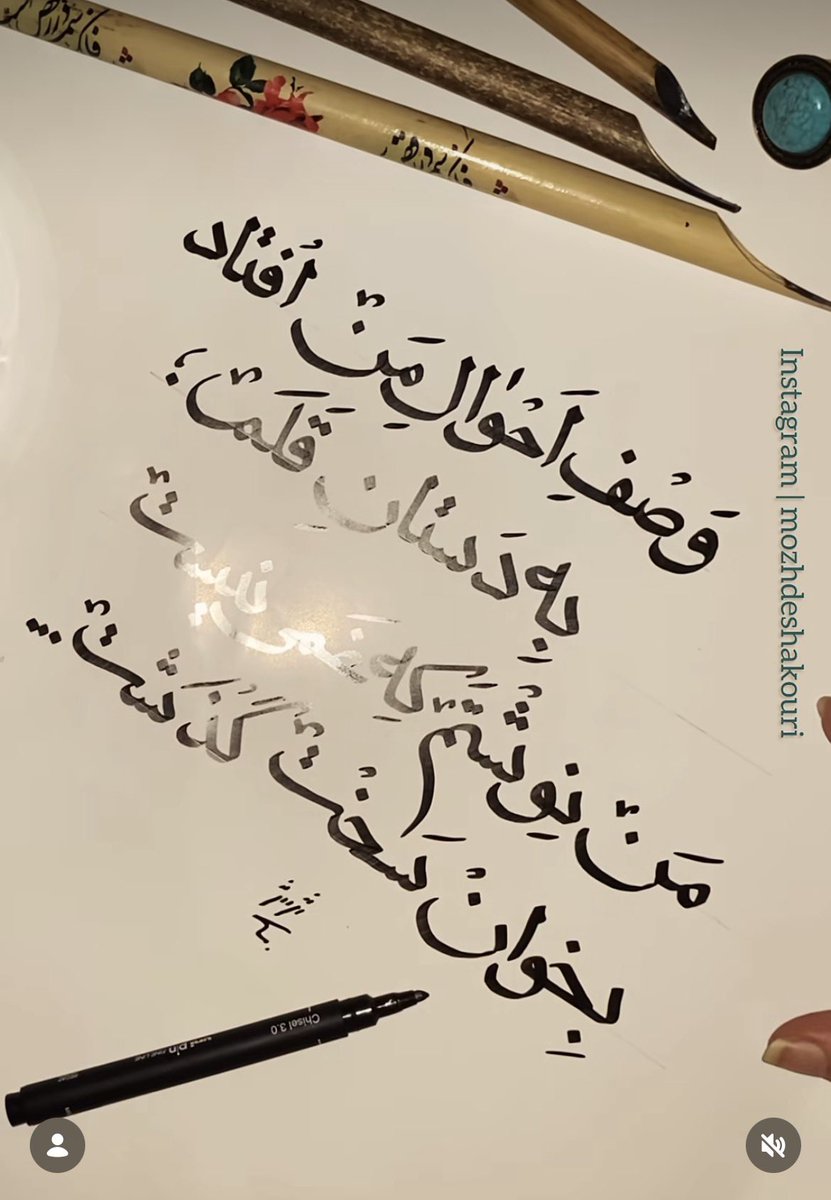 وَصْفِ اَحْوالِ مَنْ اُفتاد
بِه دَستانِ قَلَمْ؛
مَنْ نِوِشْتَمْ کِه غَمی نیستْ
بِخوانْ سَختْ گُذَشتْ...
Instagram | mozhdeshakouri
Chisel 3.0
uni pin FINE LINE